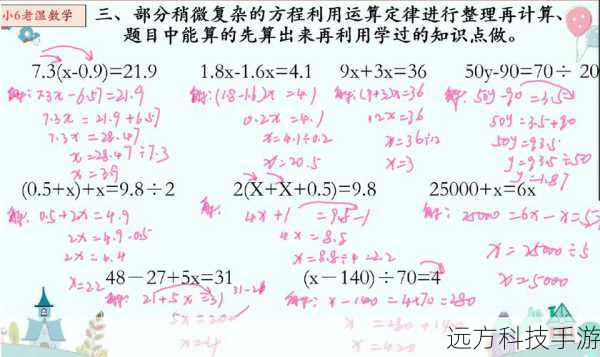 小6老温数学
三、部分稍微复杂的方程利用运算定律进行整理再计算、
题目中能算的先算出来再利用学过的知识点做。
7.3(x-0.9)=21.9 1.8x-1.6x=4.1 9x+3x=36 50y-90=70÷ 20
解:7.3x-6.57=21.9 解:(1.8-1.6)x=4.1 解:(9+3)x=36 解:50y-90=3.5
7.3x=21.9+6.57 0.2x=4.1 12x=36 50y=3.5+90
7.3x=28.47 x=4.1÷0.2 x=36÷12 50y=93.5
x=28.47÷7.3 x=20.5 x=3 y=93.5÷50
x=3.9 y=1.87
(0.5+x)+x=9.8÷2 2(X+X+0.5)=9.8 25000+x=6x
解:0.5+2x=4.9 解:4x+1=9.8-1 解:25000=6x-x=5x
2x=4.9-0.5 4x=8.8 x=25000÷5
2x=4.4 x=8.8÷4=2.2 x=5000
x=2.2
48－27+5x=31 (x－140)÷70=4
解:21+5x=31 解:x-140=4×70=280
x=280+140
x=4 x=420
远方科技手游